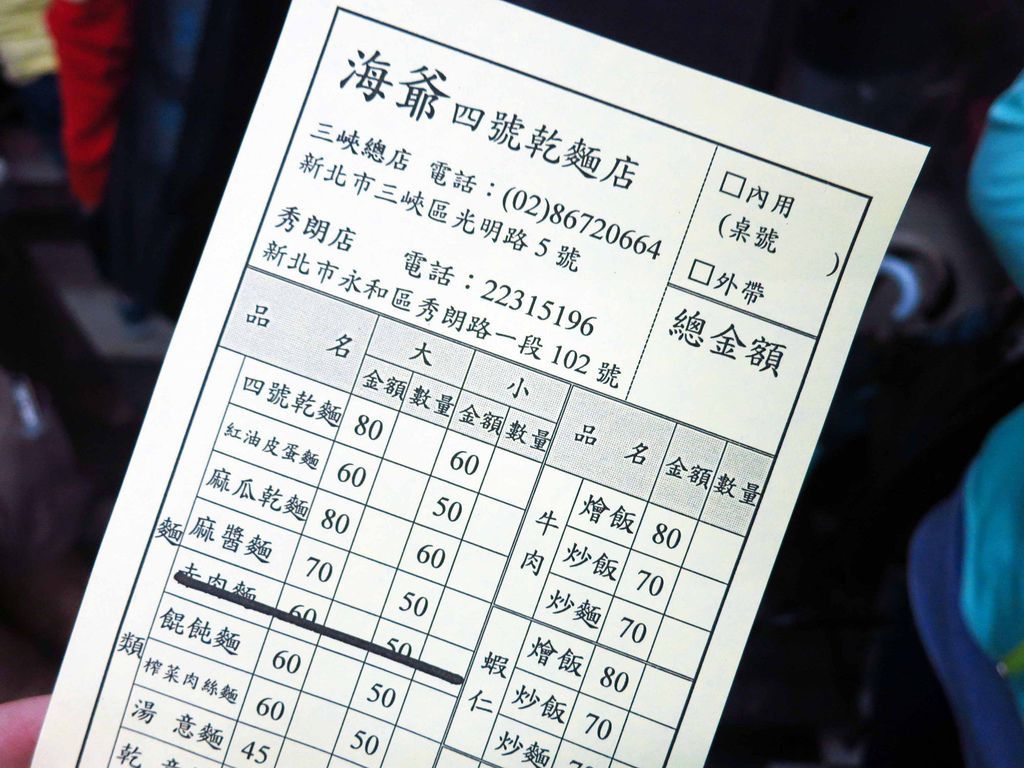 海爺四號乾麵店
三峽總店 電話：(02)86720664
新北市三峽區光明路5號
秀朗店 電話：22315196
新北市永和區秀朗路一段102號
□內用
(桌號 )
□外帶
總金額
品名 大 小
金額 數量 金額 數量
麵類
四號乾麵 80 60
紅油皮蛋麵 60 50
麻瓜乾麵 80 60
麻醬麵 70 50
肉麵 60 50
餛飩麵 60 50
榨菜肉絲麵 60 50
湯意麵 45
乾意
品名 金額 數量
牛肉
燴飯 80
炒飯 70
炒麵 70
蝦仁
燴飯 80
炒飯 70
炒麵